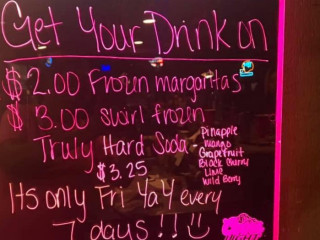 Get Your Drink on
$2.00 Frozen margaritas
$3.00 swirl frozen
Truly Hard Soda -
$3.25
Pineapple
mango
Grapefruit
Black Cherry
Lime
Wild Berry
Its only Fri YaY every
7 days!!